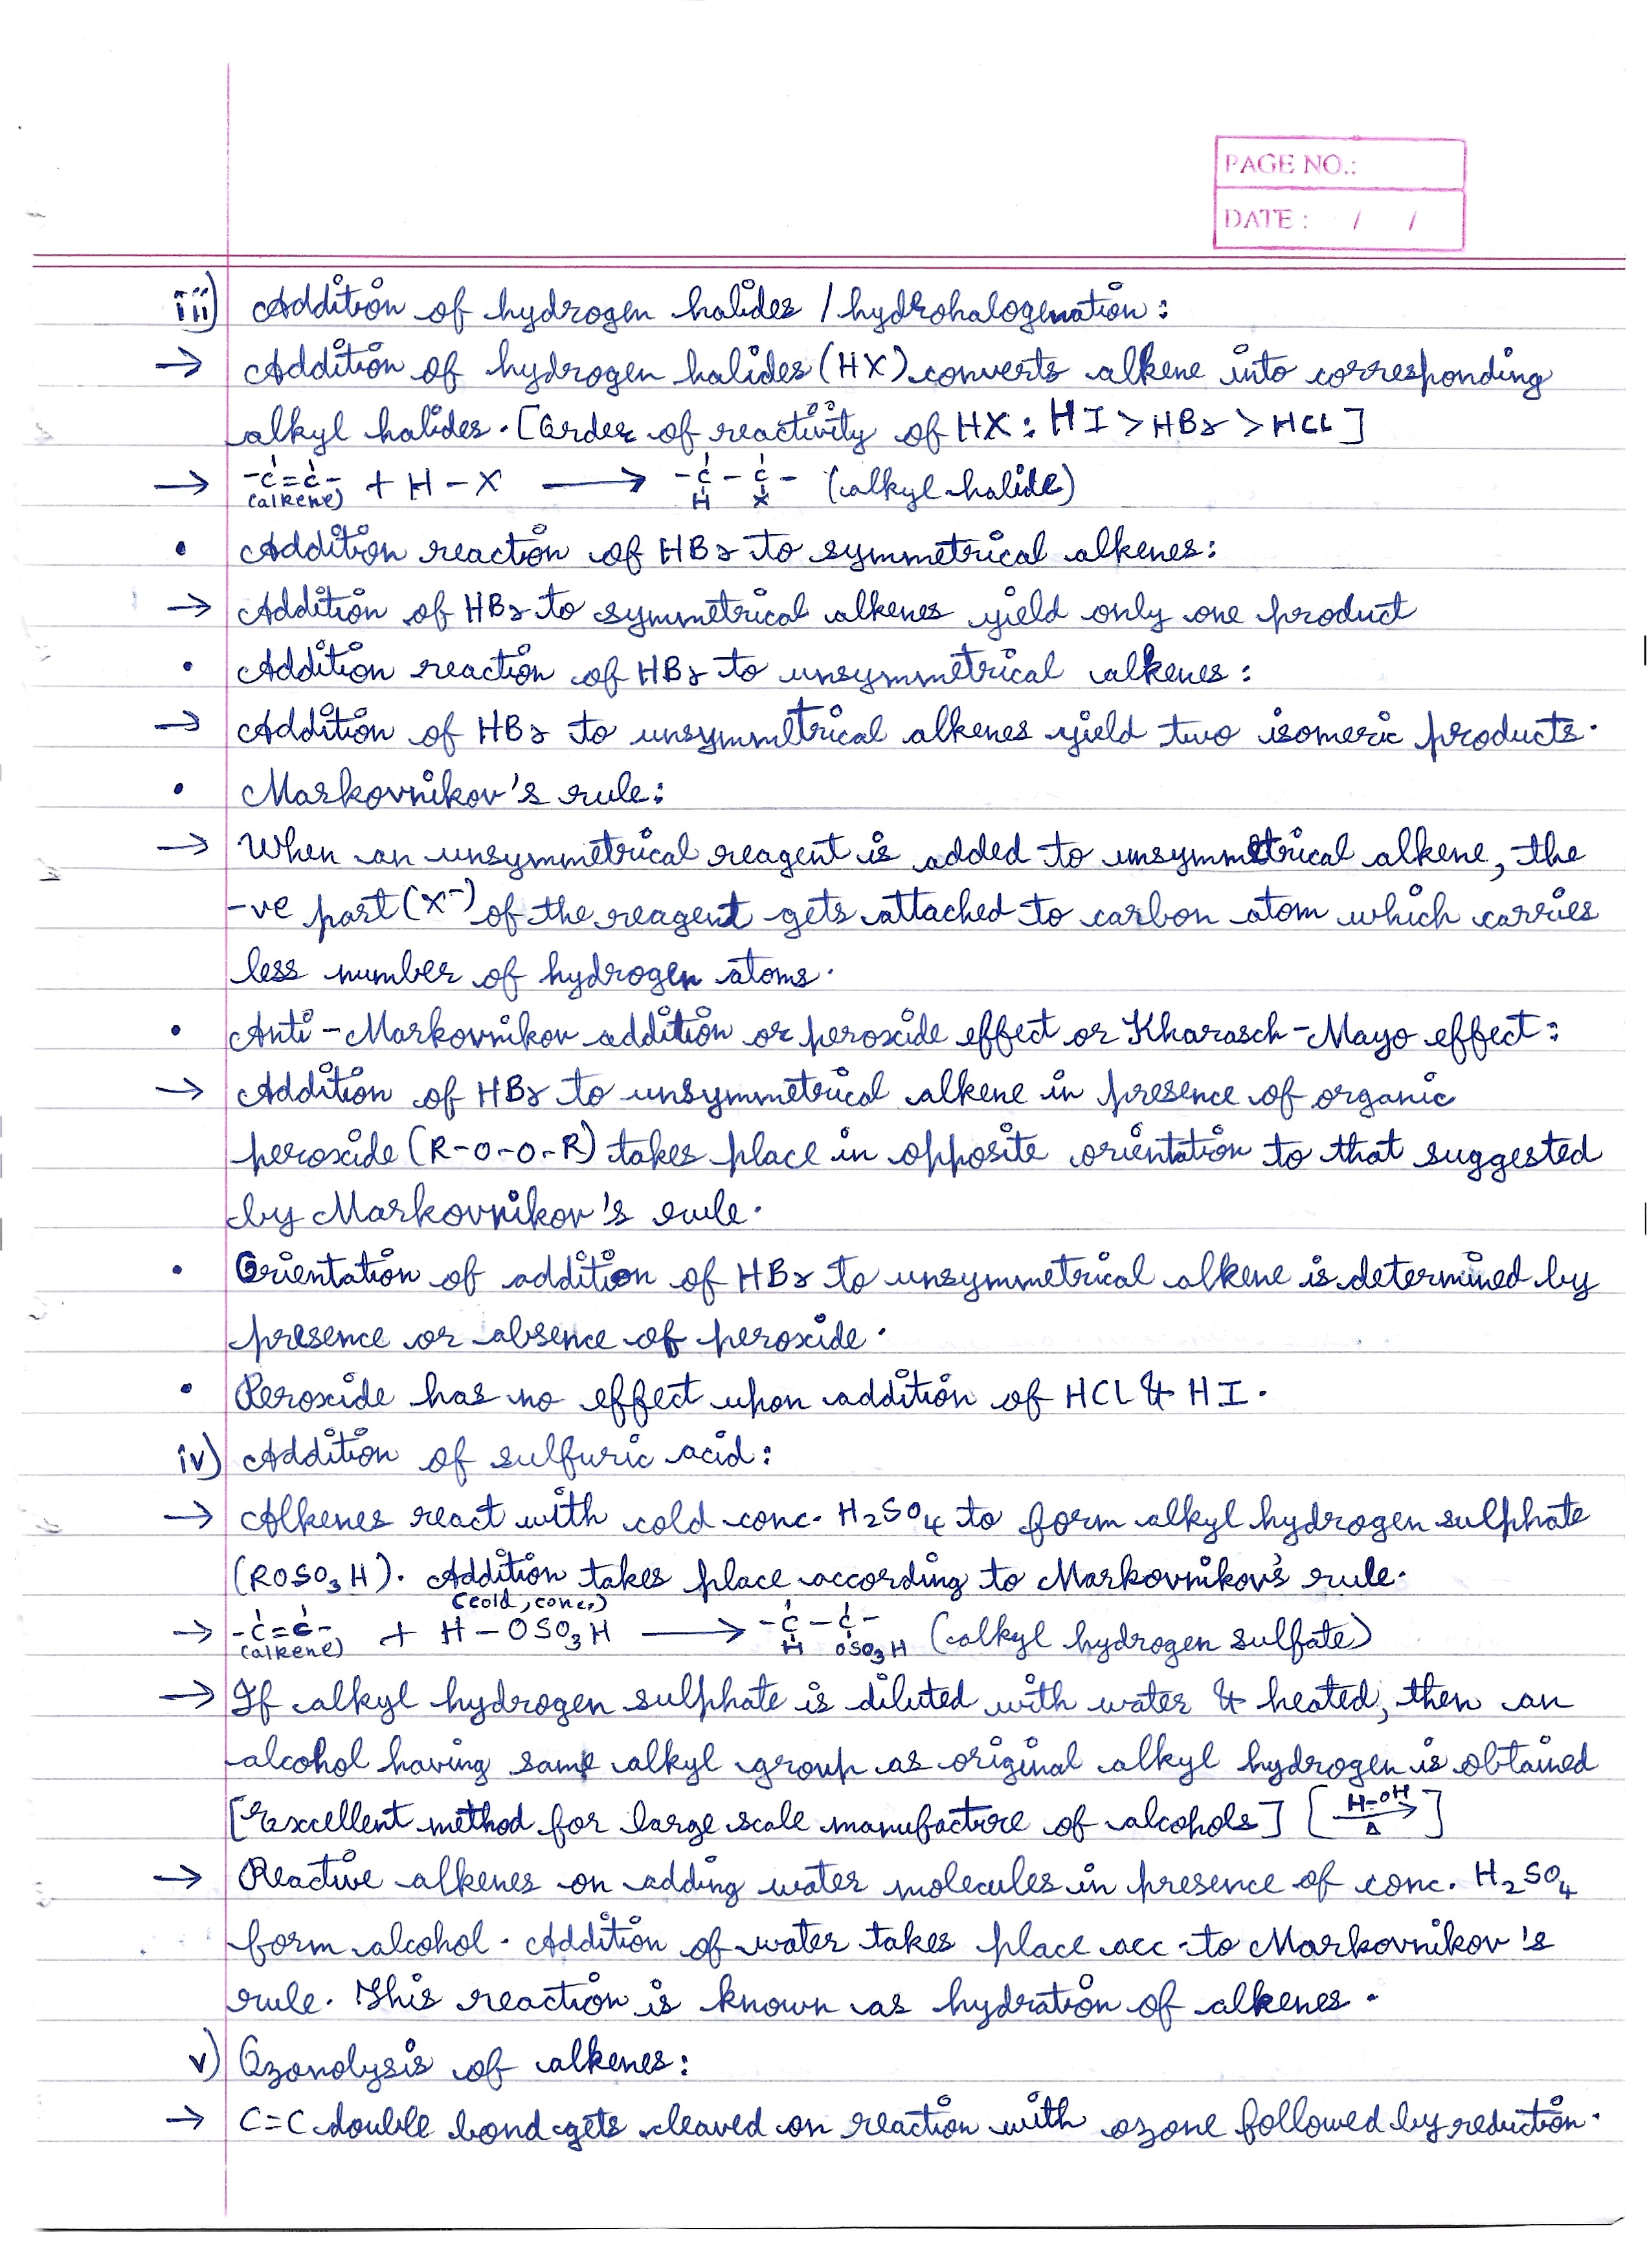 PAGE NO.:
DATE : / /
iii) Addition of hydrogen halides / hydrohalogenation :
→ Addition of hydrogen halides (HX) converts alkene into corresponding
alkyl halides. [Order of reactivity of HX : HI > HBr > HCl]
→ -C=C- + H - X ⟶ -C - C - (alkyl halide)
(alkene) H X
• Addition reaction of HBr to symmetrical alkenes:
→ Addition of HBr to symmetrical alkenes yield only one product
• Addition reaction of HBr to unsymmetrical alkenes :
→ Addition of HBr to unsymmetrical alkenes yield two isomeric products.
• Markovnikov's rule:
→ When an unsymmetrical reagent is added to unsymmetrical alkene, the
-ve part (X⁻) of the reagent gets attached to carbon atom which carries
less number of hydrogen atoms.
• Anti-Markovnikov addition or peroxide effect or Kharasch-Mayo effect:
→ Addition of HBr to unsymmetrical alkene in presence of organic
peroxide (R-O-O-R) takes place in opposite orientation to that suggested
by Markovnikov's rule.
• Orientation of addition of HBr to unsymmetrical alkene is determined by
presence or absence of peroxide.
• Peroxide has no effect upon addition of HCl & HI.
iv) Addition of sulfuric acid:
→ Alkenes react with cold conc. H₂SO₄ to form alkyl hydrogen sulphate
(ROSO₃H). Addition takes place according to Markovnikov's rule.
(cold, conc.)
→ -C=C- + H - OSO₃H ⟶ -C - C - (alkyl hydrogen sulfate)
(alkene) H OSO₃H
→ If alkyl hydrogen sulphate is diluted with water & heated, then an
alcohol having same alkyl group as original alkyl hydrogen is obtained
[Excellent method for large scale manufacture of alcohols] [H-OH ⟶ Δ]
→ Reactive alkenes on adding water molecules in presence of conc. H₂SO₄
form alcohol. Addition of water takes place acc. to Markovnikov's
rule. This reaction is known as hydration of alkenes.
v) Ozonolysis of alkenes:
→ C=C double bond gets cleaved on reaction with ozone followed by reduction.